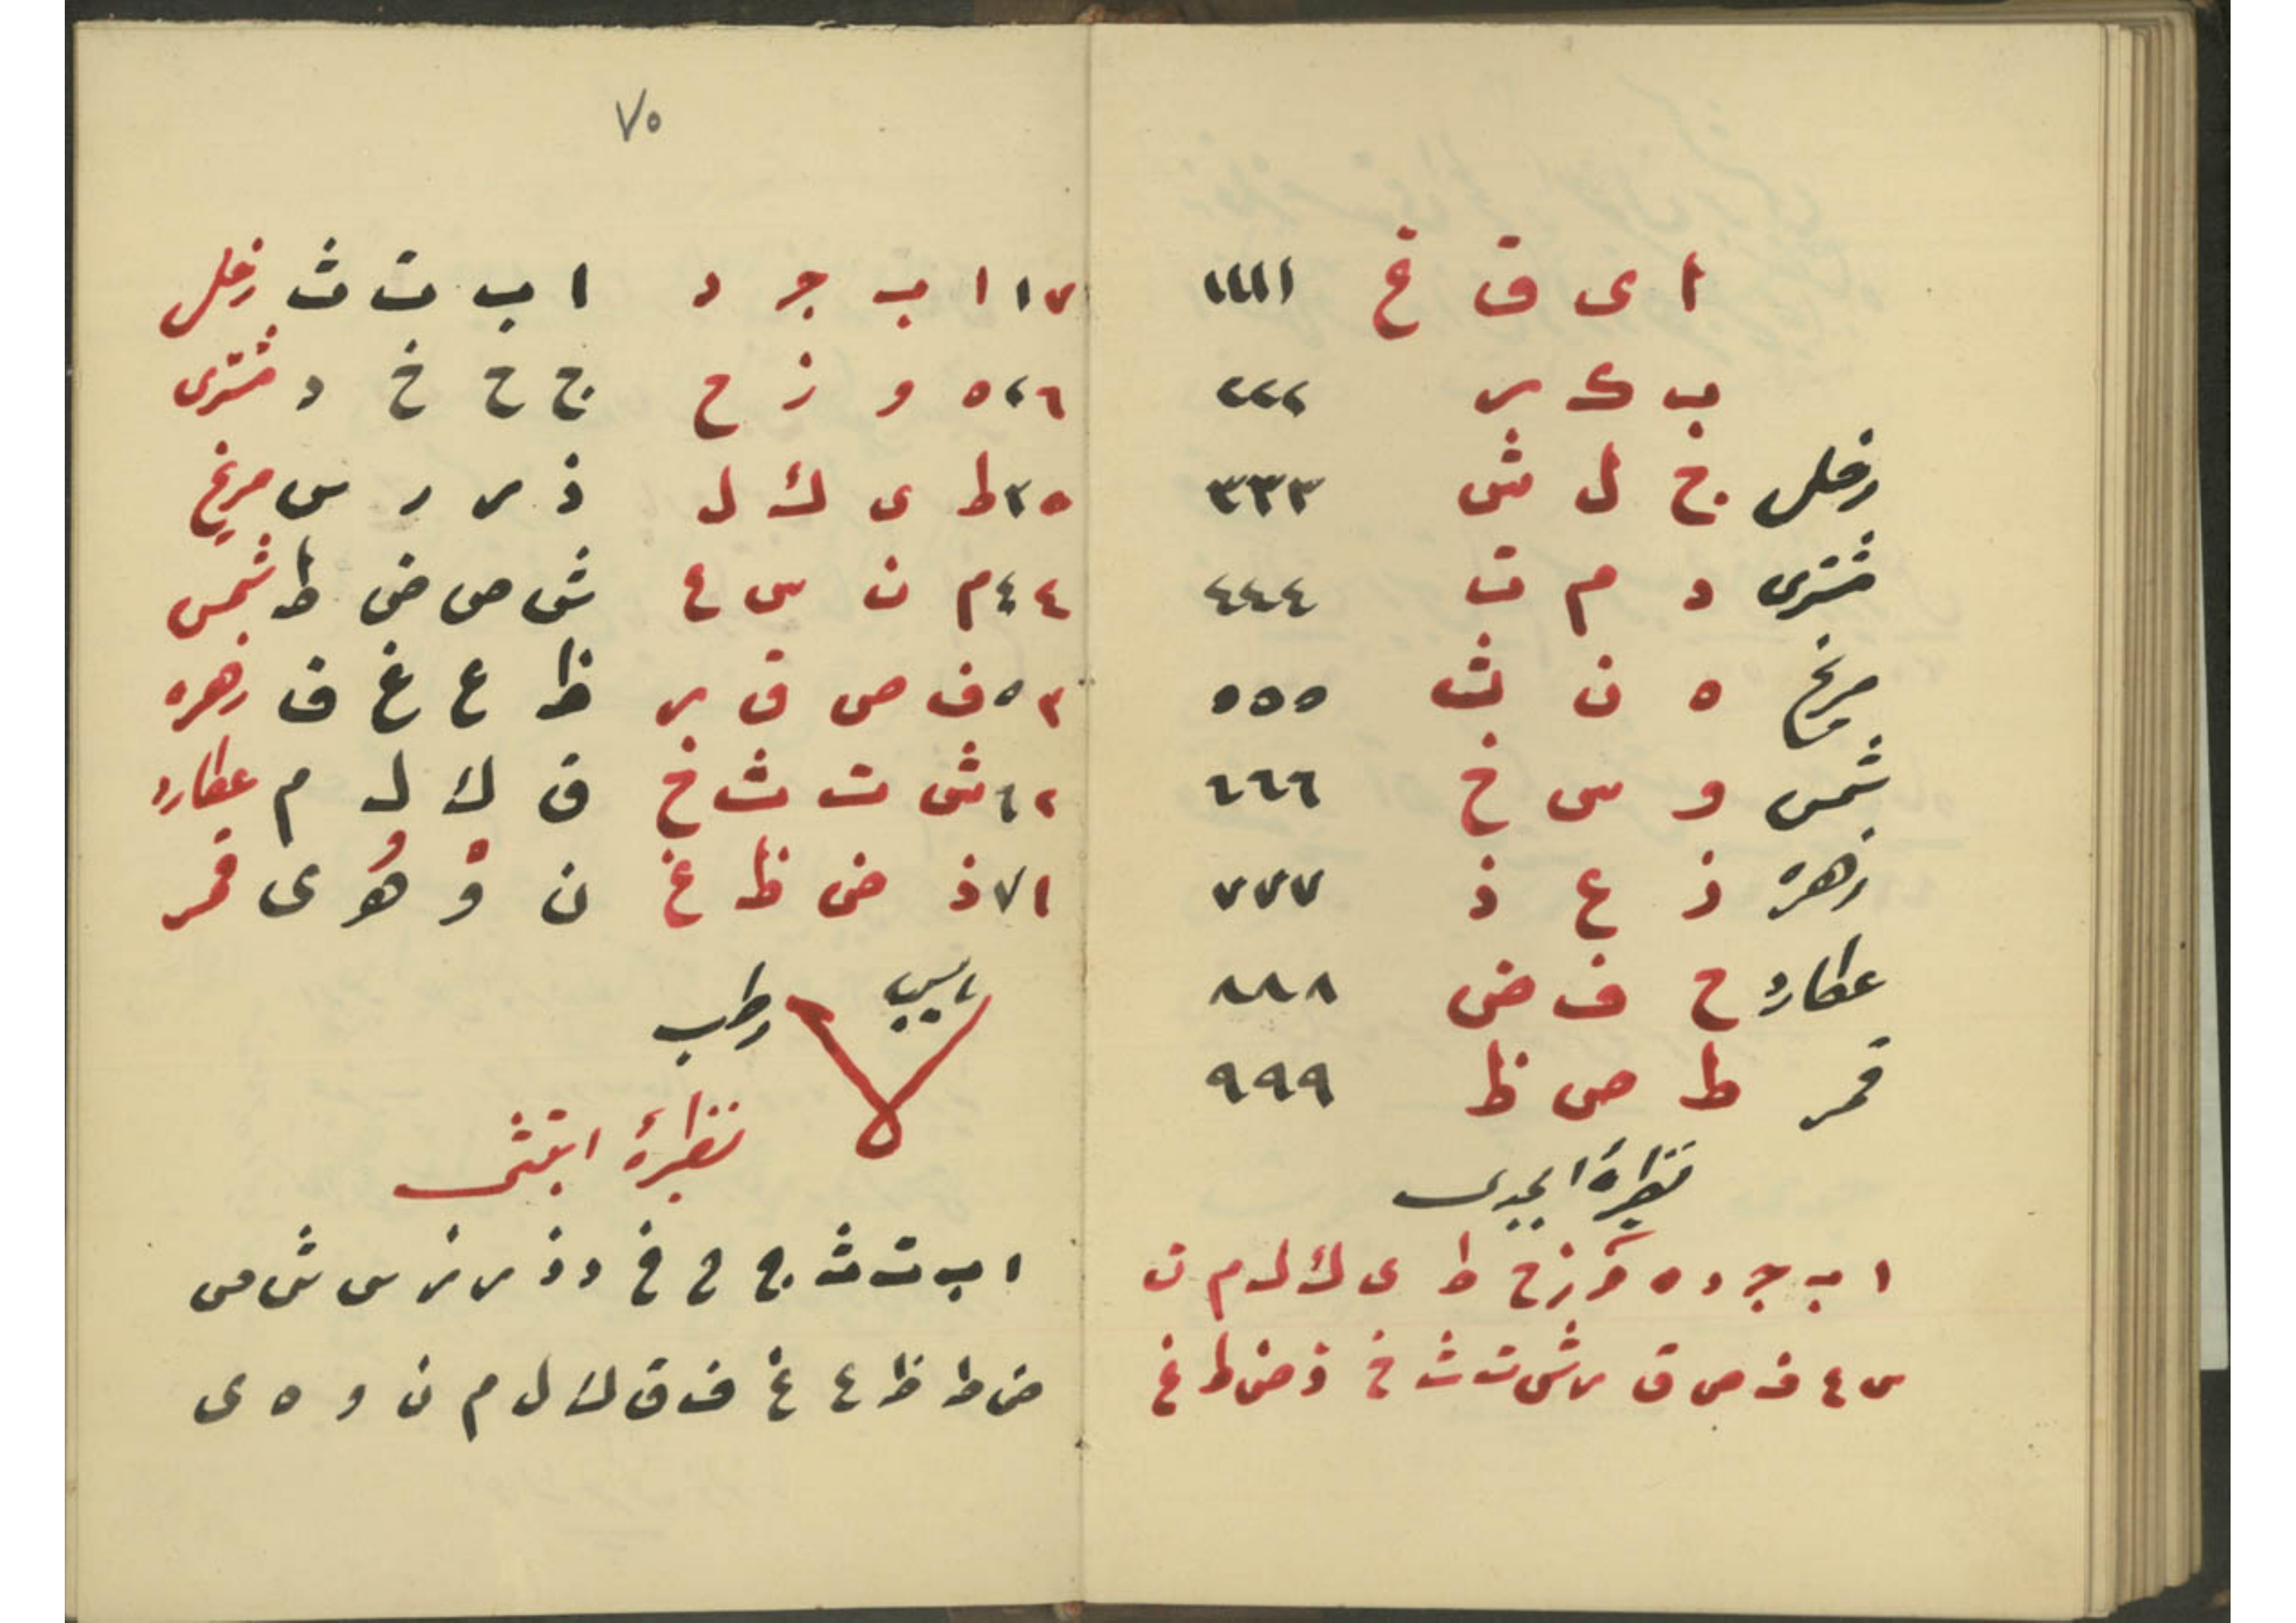 ا ی ق غ ١١١١
ب ک ر ٢٢٢
زحل ج ل ش ٣٣٣
مشتری د م ت ٤٤٤
مریخ ه ن ث ٥٥٥
شمس و س خ ٦٦٦
زهره ز ع ذ ٧٧٧
عطارد ح ف ض ٨٨٨
قمر ط ص ظ ٩٩٩
نظیرهٔ ابجدی
ا ب ج د ه و ز ح ط ی ك ل م ن
س ع ف ص ق ر ش ت ث خ ذ ض ظ غ
٧٥
١٧ ا ب ج د ا ب ت ث زحل
٢٦ ه و ز ح ج ح خ د مشتری
٣٥ ط ی ك ل ذ ر ز س مریخ
٤٤ م ن س ع ش ص ض ط شمس
٥٣ ف ص ق ر ظ ع غ ف زهره
٦٢ ش ت ث خ ق ك ل م عطارد
٧١ ذ ض ظ غ ن و ه ی قمر
رطب
نظیرهٔ ابتثی
ا ب ت ث ج ح خ د ذ ر ز س ش ص
ض ط ظ ع غ ف ق ك ل م ن و ه ی